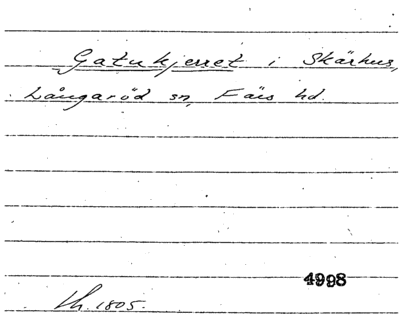 Gatukjerret i Skärhus,
Långaröd sn, Färs hd.
4998
th. 1805.